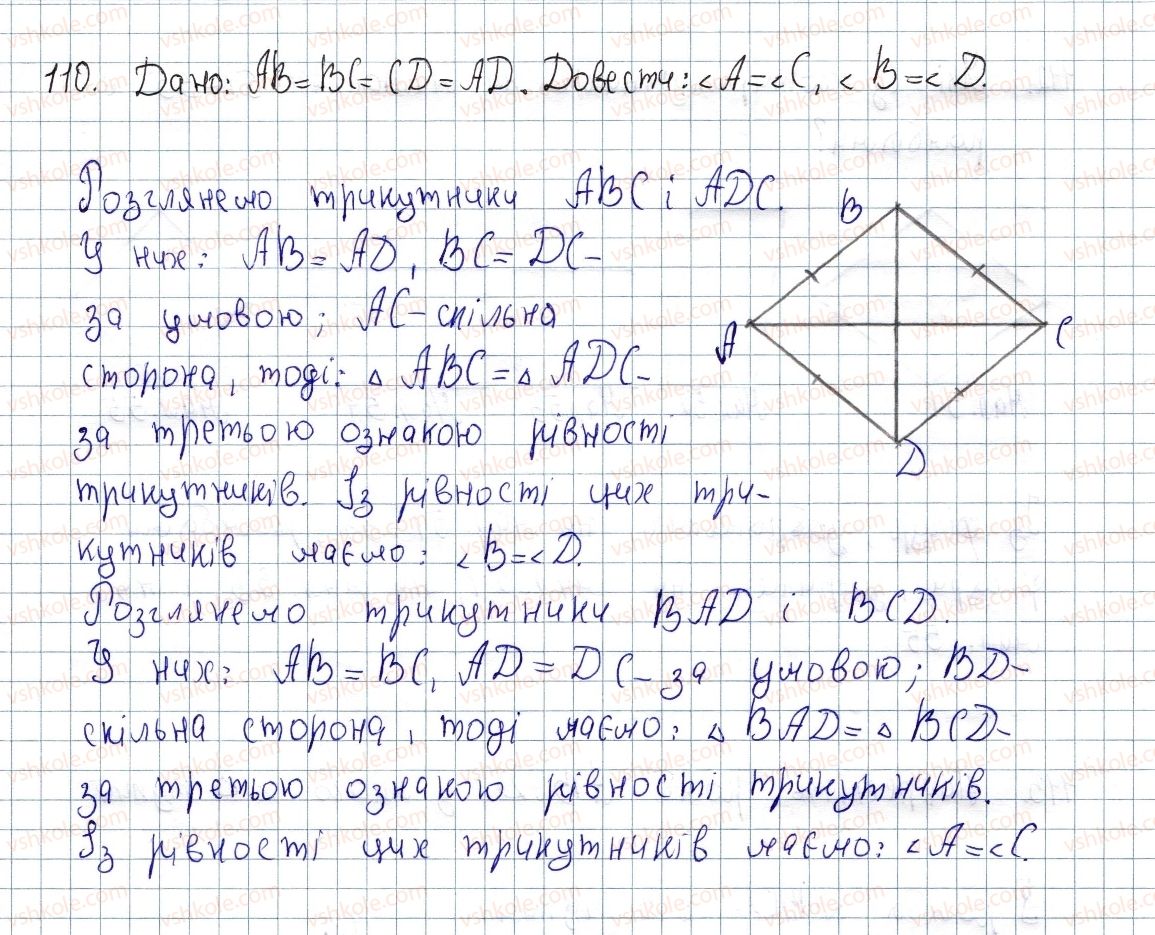 110. Дано: AB=BC=CD=AD. Довести: <A=<C, <B=<D.
Розглянемо трикутники ABC і ADC.
У них: AB=AD, BC=DC-
за умовою; AC-спільна
сторона, тоді: △ ABC=△ ADC-
за третьою ознакою рівності
трикутників. Із рівності цих три-
кутників маємо: <B=<D.
Розглянемо трикутники BAD і BCD.
У них: AB=BC, AD=DC-за умовою; BD-
спільна сторона, тоді маємо: △ BAD=△ BCD-
за третьою ознакою рівності трикутників.
Із рівності цих трикутників маємо: <A=<C.
B
A
C
D
vshkole.com